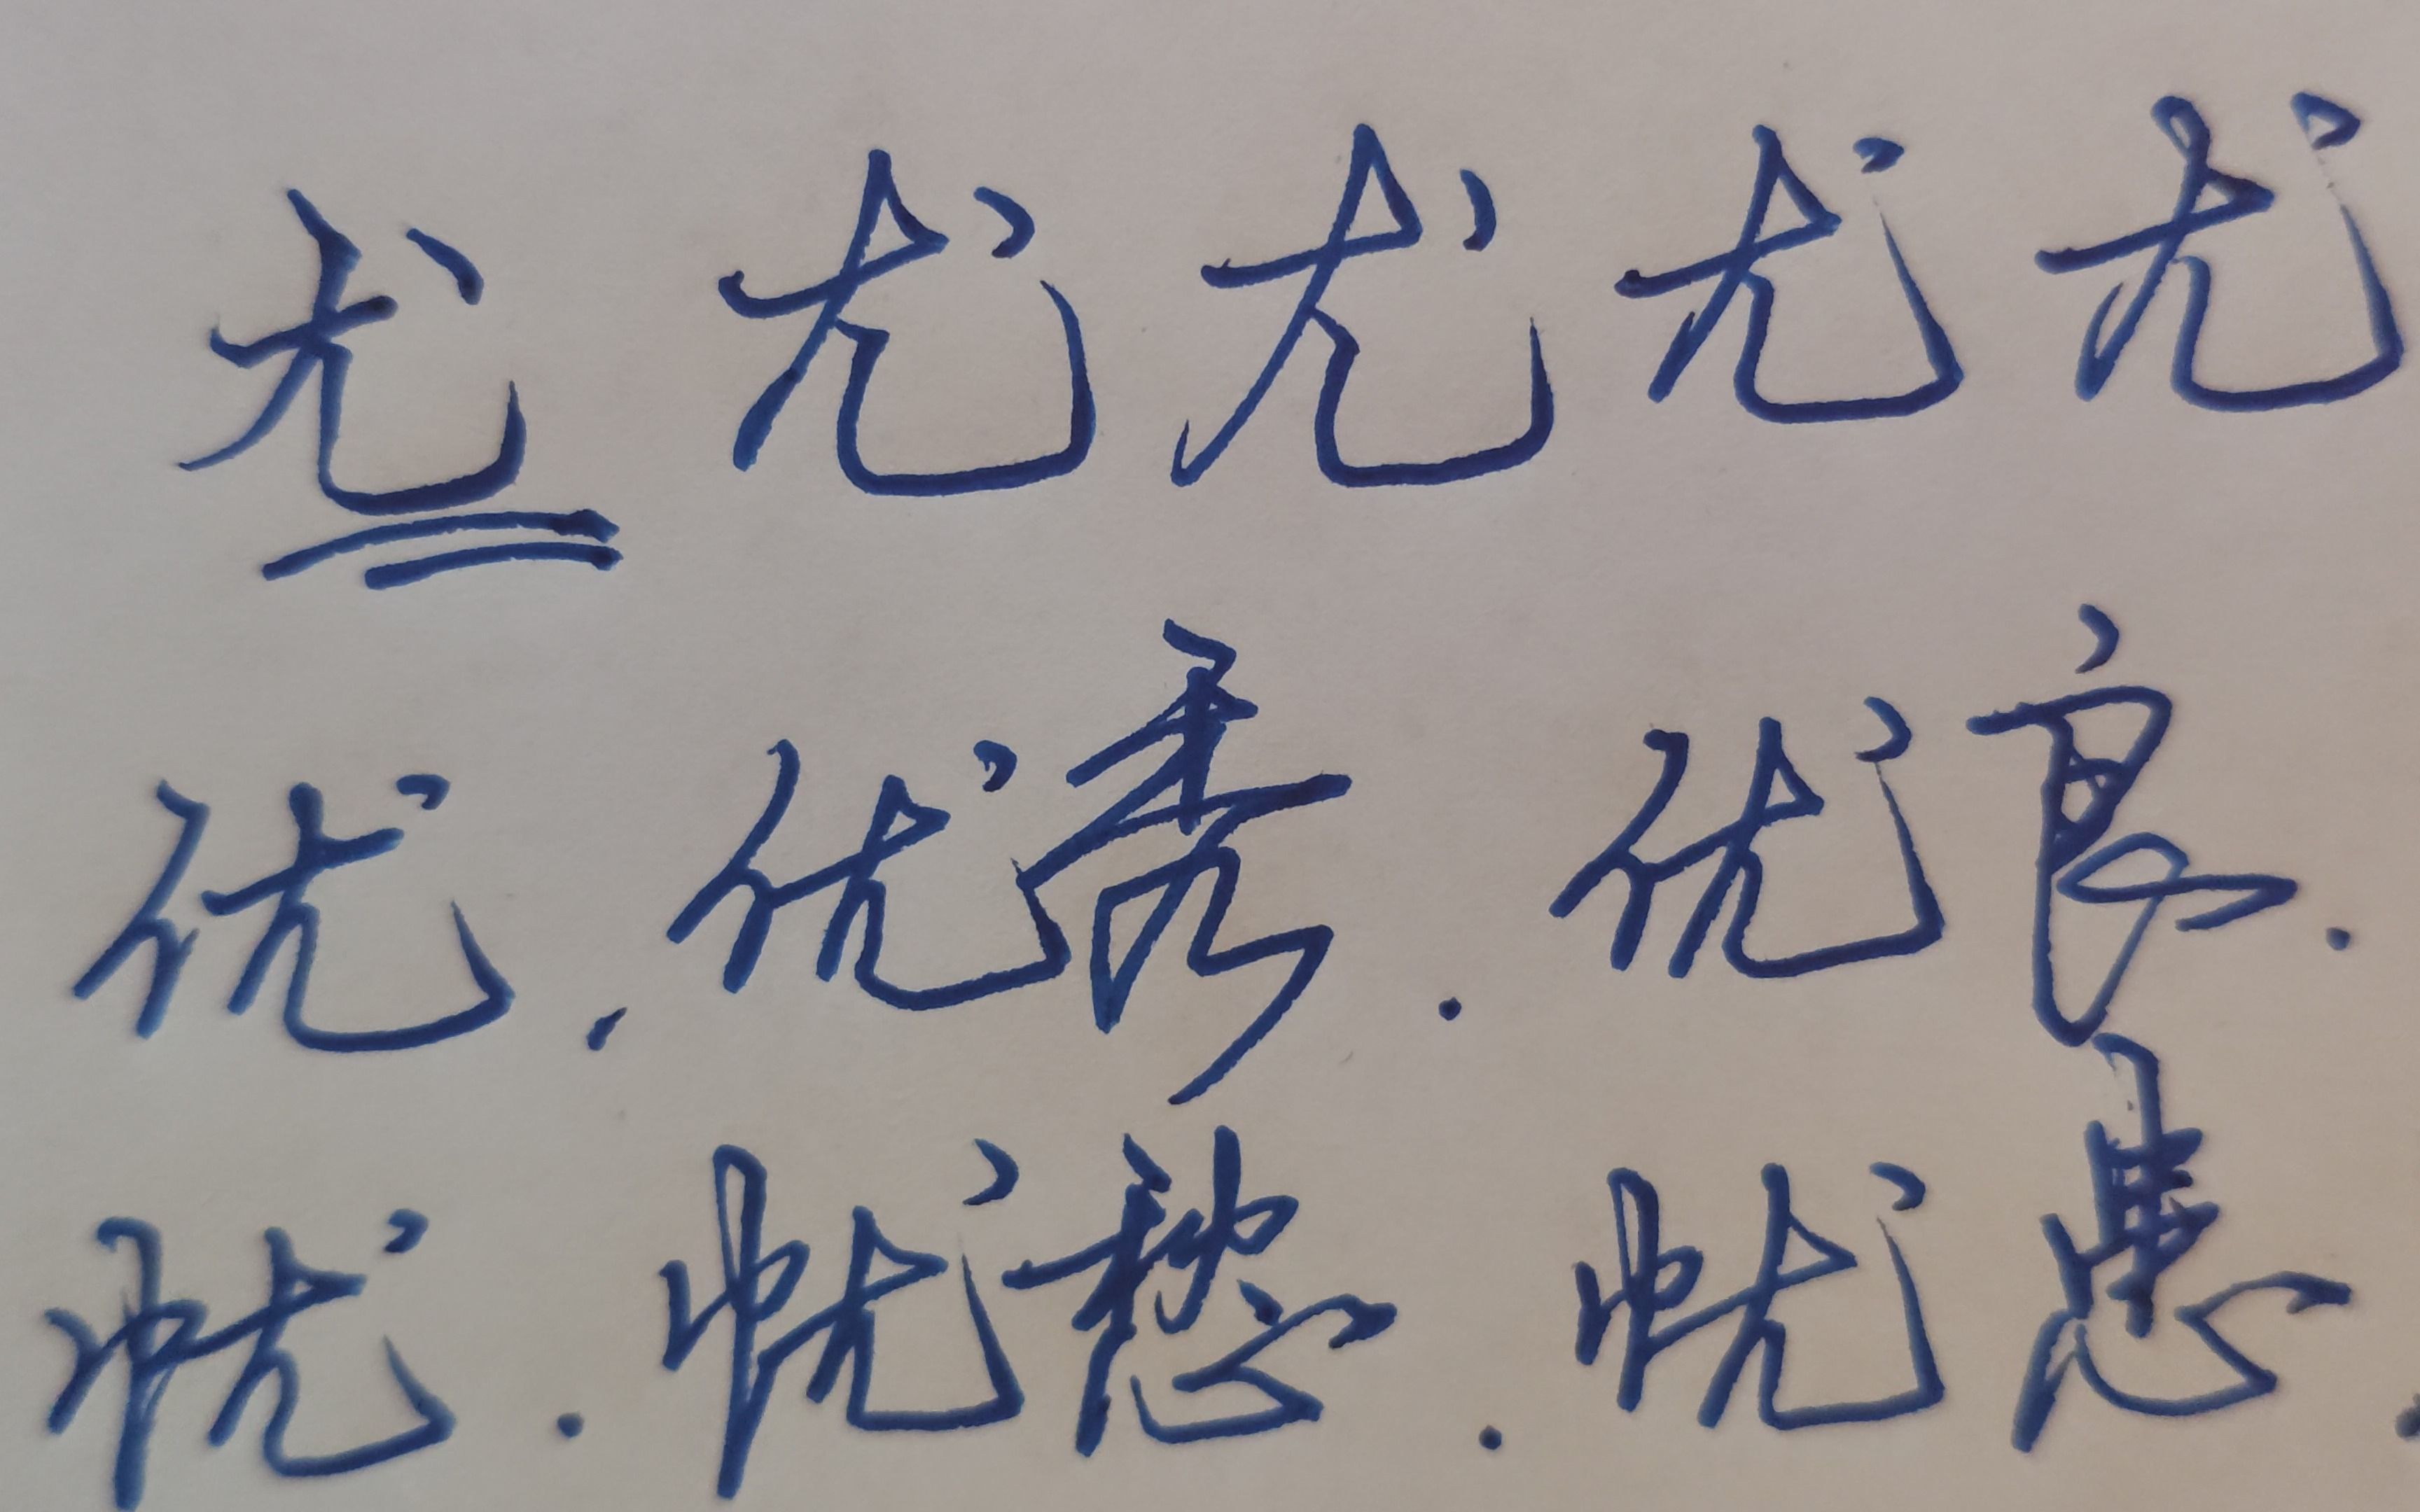 尤 尤 尤 尤 尤
优. 优秀. 优良.
忧. 忧愁. 忧患.